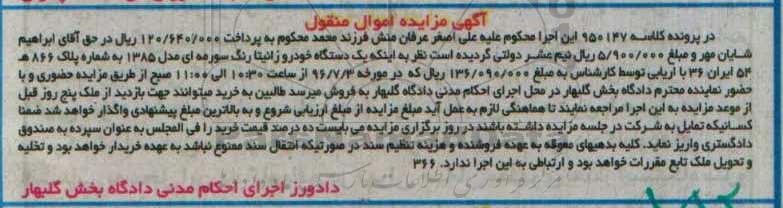 آگهی مزایده اموال منقول
در پرونده کلاسه ۹۵۰۱۴۷ این اجرا محکوم علیه علی اصغر عرفان منش فرزند محمد محکوم به پرداخت ۱۲۰/۶۴۰/۰۰۰ ریال در حق آقای ابراهیم
شایان مهر و مبلغ ۵/۹۰۰/۰۰۰ ریال نیم عشر دولتی گردیده است نظر به اینکه یک دستگاه خودرو زانتیا رنگ سورمه ای مدل ۱۳۸۵ به شماره پلاک ۸۶۶ هـ
۵۴ ایران ۳۶ با ارزیابی توسط کارشناس به مبلغ ۱۳۶/۰۹۰/۰۰۰ ریال که در مورخه ۹۶/۷/۳ از ساعت ۱۰:۳۰ الی ۱۱:۰۰ صبح از طریق مزایده حضوری و با
حضور نماینده محترم دادگاه بخش گلبهار در محل اجرای احکام مدنی دادگاه گلبهار به فروش میرسد طالبین به خرید میتوانند جهت بازدید از ملک پنج روز قبل
از موعد مزایده به این اجرا مراجعه نمایند تا هماهنگی لازم به عمل آید مبلغ مزایده از مبلغ ارزیابی شروع و به بالاترین مبلغ پیشنهادی واگذار خواهد شد ضمنا
کسانیکه تمایل به شرکت در جلسه مزایده داشته باشند در روز برگزاری مزایده می بایست ده درصد قیمت خرید را فی المجلس به عنوان سپرده به صندوق
دادگستری واریز نماید. کلیه بدهیهای معوقه به عهده فروشنده و هزینه تنظیم سند در صورتیکه انتقال سند ممنوع نباشد به عهده خریدار خواهد بود و تخلیه
و تحویل ملک تابع مقررات خواهد بود و ارتباطی به این اجرا ندارد. ۳۶۶
دادورز اجرای احکام مدنی دادگاه بخش گلبهار